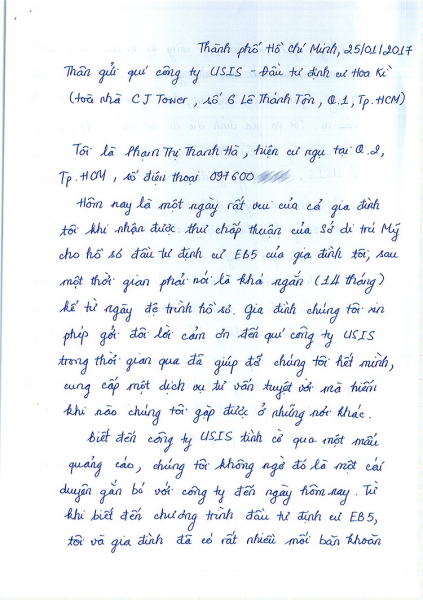 Thành phố Hồ Chí Minh, 25/01/2017
Thân gửi quí công ty USIS - Đầu tư định cư Hoa Kì
(toà nhà CJ Tower, số 6 Lê Thánh Tôn, Q.1, Tp.HCM)
Tôi là Phạm Thị Thanh Hà, hiện cư ngụ tại Q.2,
Tp.HCM, số điện thoại 097600
Hôm nay là một ngày rất vui của cả gia đình
tôi khi nhận được thư chấp thuận của Sở di trú Mỹ
cho hồ sơ đầu tư định cư EB5 của gia đình tôi, sau
một thời gian phải nói là khá ngắn (14 tháng)
kể từ ngày đệ trình hồ sơ. Gia đình chúng tôi xin
phép gởi đôi lời cảm ơn đến quí công ty USIS
trong thời gian qua đã giúp đỡ chúng tôi hết mình,
cung cấp một dịch vụ tư vấn tuyệt vời mà hiếm
khi nào chúng tôi gặp được ở những nơi khác.
Biết đến công ty USIS tình cờ qua một mẩu
quảng cáo, chúng tôi không ngờ đó là một cái
duyên gắn bó với công ty đến ngày hôm nay. Từ
khi biết đến chương trình đầu tư định cư EB5,
tôi và gia đình đã có rất nhiều mối băn khoăn